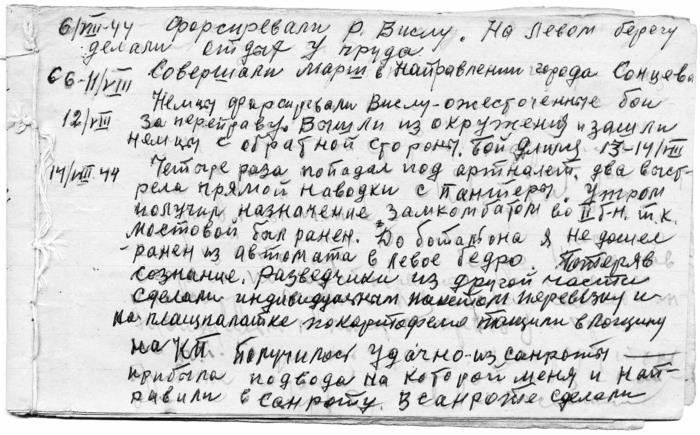 6/VIII-44 Форсировали р. Вислу. На левом берегу
делали отдых у пруда
С 6-11/VIII Совершали марш в направлении города Сонцева
Немцы фрарсировали Вислу-ожесточенные бои
12/VIII за переправу. Вышли из окружения и зашли
немцы с обратной стороны. Бой длился 13-14/VIII
14/VIII 44 Четыре раза попадал под артналет. два выст-
рела прямой наводки с Пантеры. Утром
получил назначение замкомбатом во II б-н. т.к.
мостовой был ранен. До батальона я не дошел
ранен из автомата в левое бедро. Потеряв
сознание. Разведчики из другой части
сделали индивидуальным пакетом перевязку и
на плащпалатке по картофелю тащили в лощину
на КП. Получилось удачно-из санроты
прибыла подвода на которой меня и нап-
равили в санроту. В санроте сделали